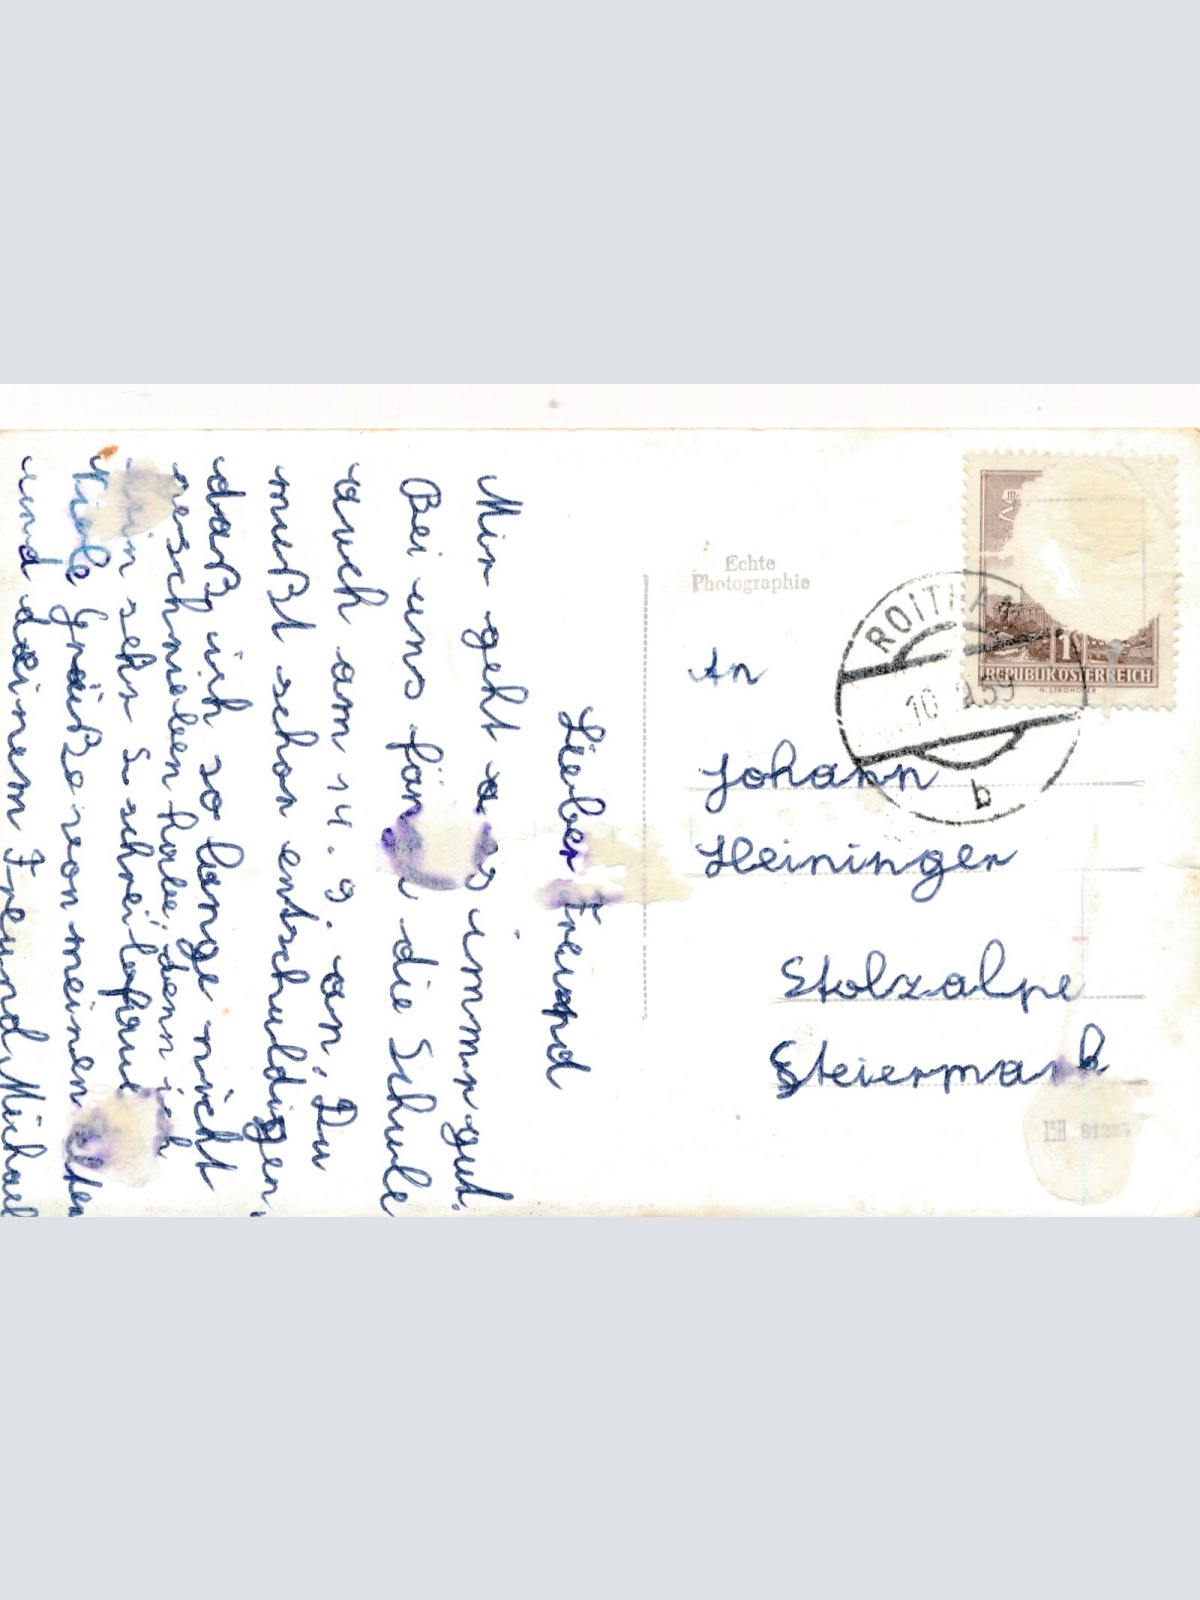 Lieber Freund
Mir geht es immer gut.
Bei uns fän die Schule
auch am 14. 9. an, Du
mußt schon entschuldigen,
daß ich so lange nicht
geschrieben habe, denn ich
bin sehr schreibfaul
Viele Grüße von meinen Eltern
und deinem Freund Michael
Echte
Photographie
An
Johann
Heininger
Stolzalpe
Steiermark
ROITHA
10. 9.59
b
1S
REPUBLIK ÖSTERREICH
H. STROHOFER
81223